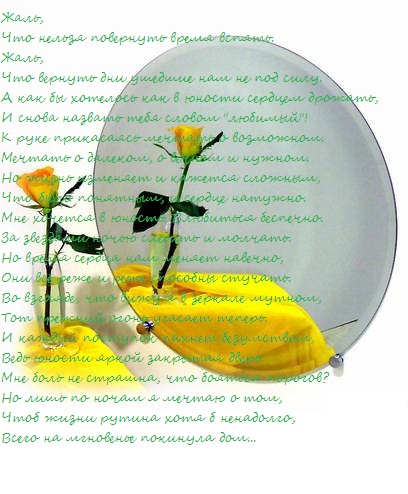 Жаль,
Что нельзя повернуть время вспять.
Жаль,
Что вернуть дни ушедшие нам не под силу.
А как бы хотелось как в юности сердцем дрожать,
И снова назвать тебя словом "любимый"!
К руке прикасаясь мечтать о возможном.
Мечтать о далеком, о и нужном,
Но жизнь изменяет и кажется сложным,
Что было понятным, и сердце натужно.
Мне хочется в юность влюбиться беспечно.
За звездами ночью смотреть и молчать.
Но время сердца нам меняет навечно,
Они все реже и реже способны стучать.
Во взгляде, что вижу я в зеркале мутном,
Тот прежний огонь угасает теперь.
И каждый поступок пахнет безумством,
Ведь юности яркой закрытая дверь.
Мне боль не страшна, что бояться порогов?
Но лишь по ночам я мечтаю о том,
Чтоб жизни рутина хотя б ненадолго,
Всего на мгновенье покинула дом...